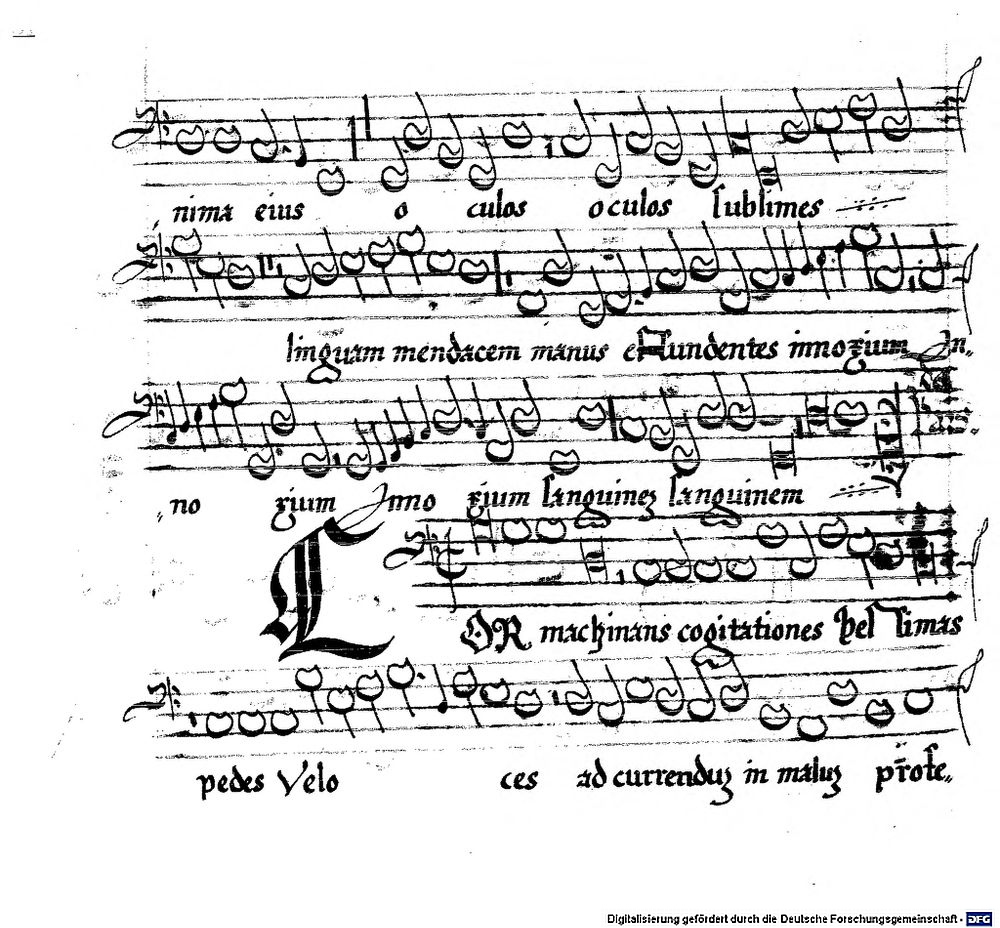 nima eius o culos oculos sublimes
linguam mendacem manus effundentes innoxium In„
„no xium Inno xium sanguinez sanguinem
COR machinans cogitationes pessimas
pedes Velo ces ad currenduz in maluz profe„
Digitalisierung gefördert durch die Deutsche Forschungsgemeinschaft - DFG